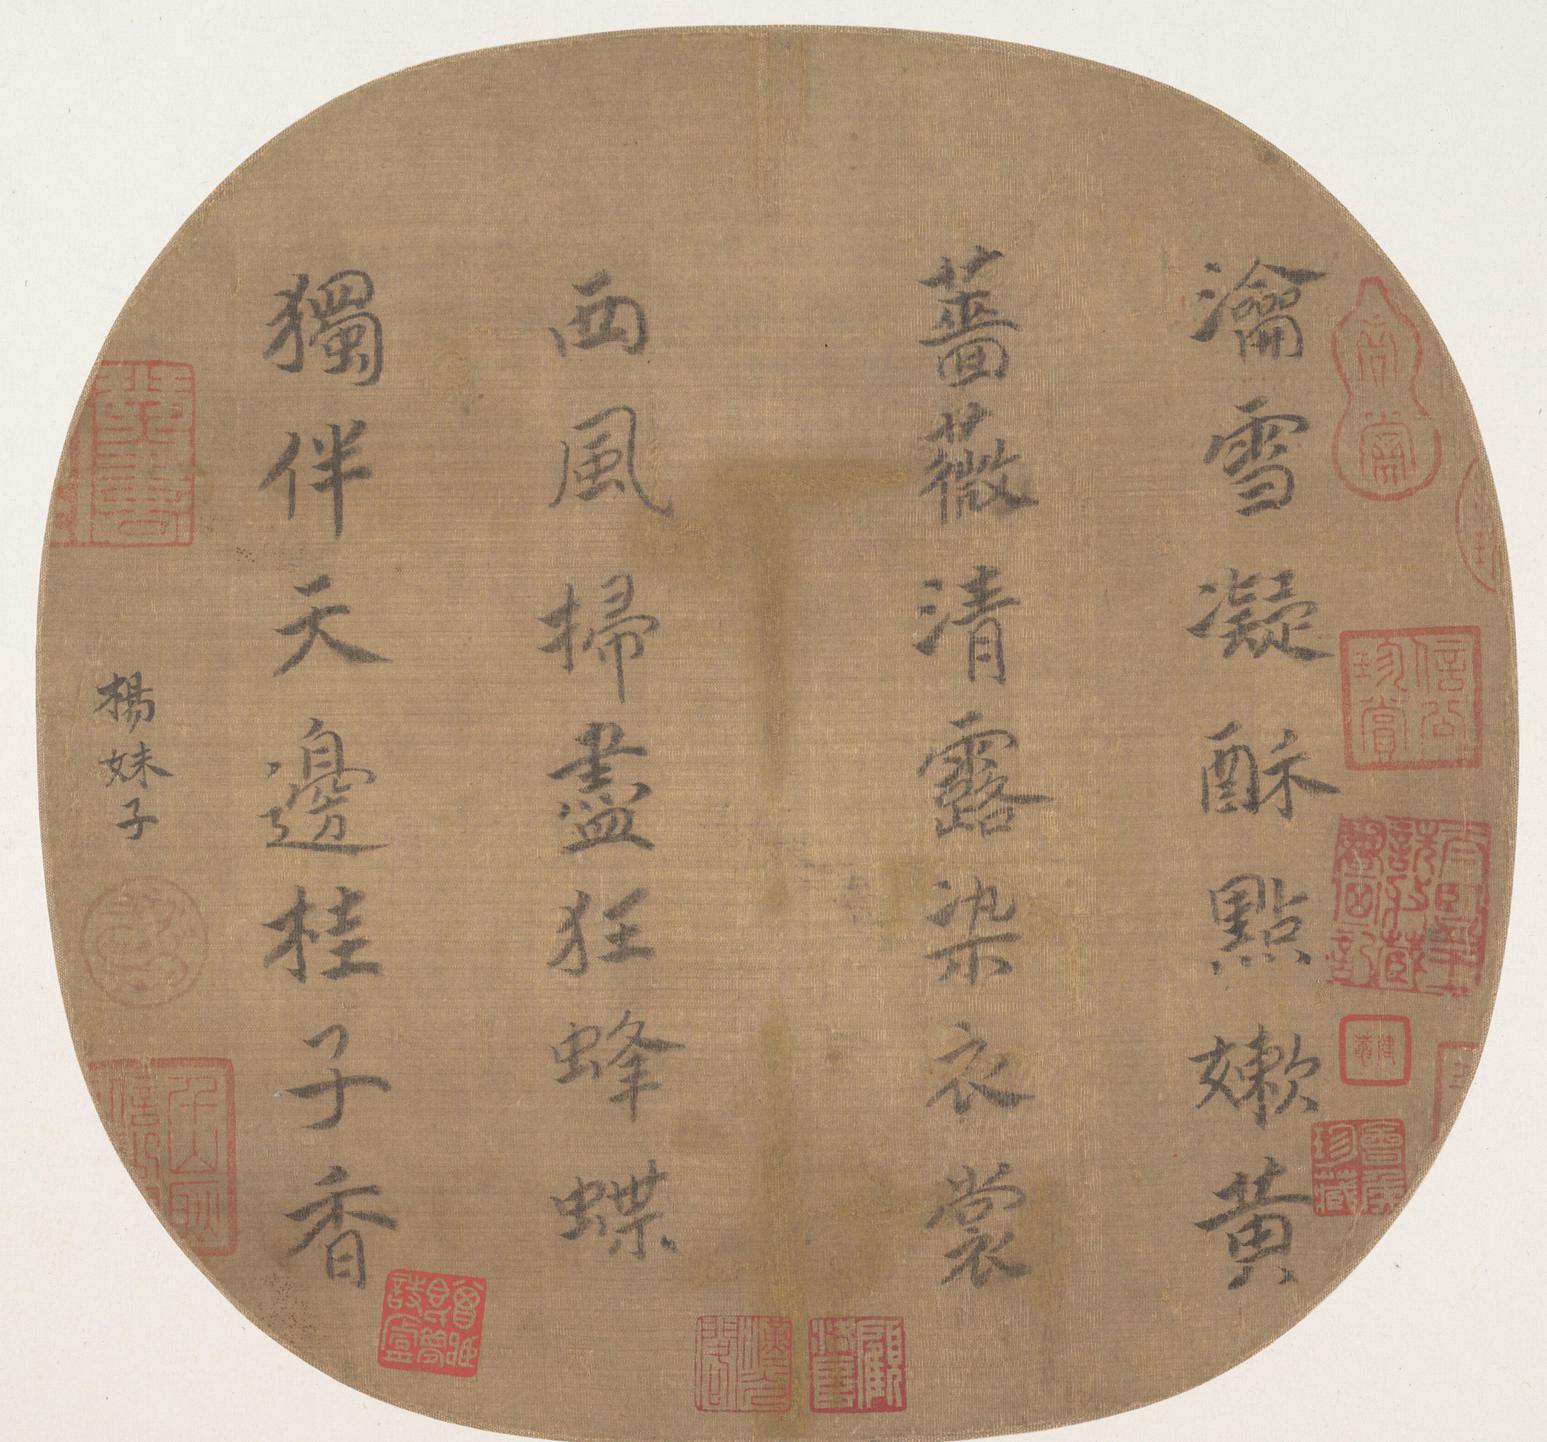 瀹雪凝酥點嫩黃
薔薇清露染衣裳
西風掃盡狂蜂蝶
獨伴天邊桂子香
楊妹子
信公珍賞